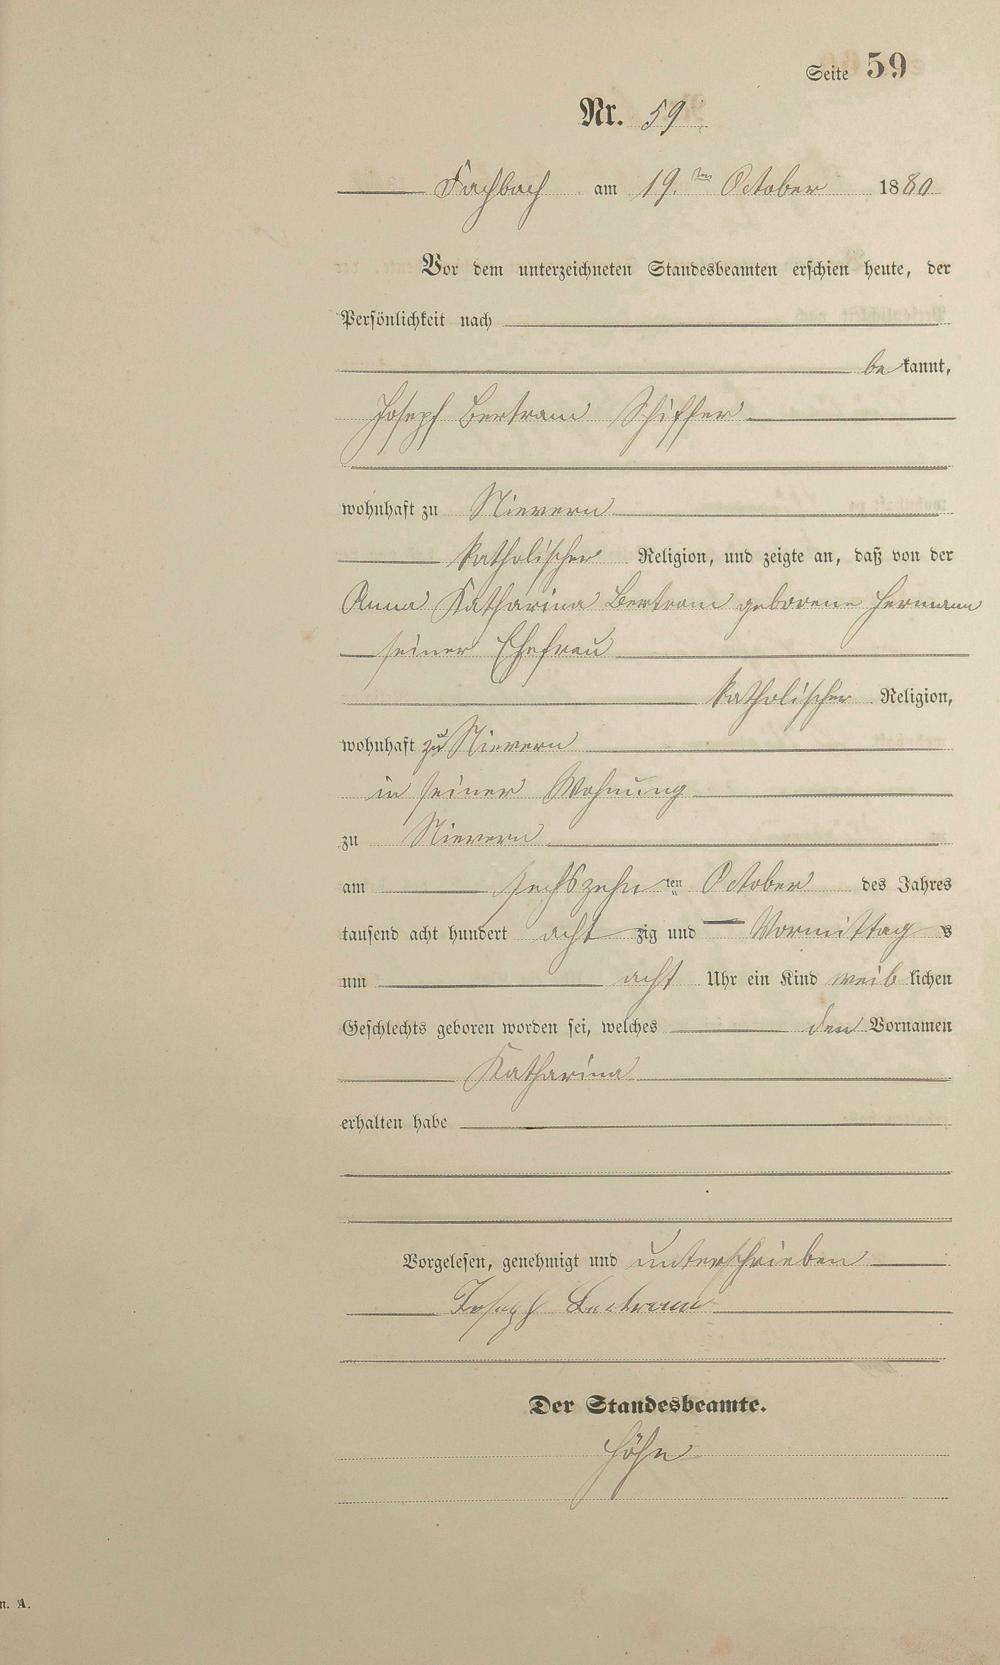 Seite 59
Nr. 59
Fachbach am 19.ten October 1880
Vor dem unterzeichneten Standesbeamten erschien heute, der
Persönlichkeit nach
bekannt,
Joseph Bertram Schiffer
wohnhaft zu Nievern
katholischer Religion, und zeigte an, daß von der
Anna Katharina Bertram geborene Hermann
seiner Ehefrau
katholischer Religion,
wohnhaft zu Nievern
in seiner Wohnung
zu Nievern
am sechszehnten October des Jahres
tausend acht hundert achtzig und Vormittags
um acht Uhr ein Kind weiblichen
Geschlechts geboren worden sei, welches den Vornamen
Katharina
erhalten habe
Vorgelesen, genehmigt und unterschrieben
Joseph Bertram
Der Standesbeamte.
Höhn
n. A.